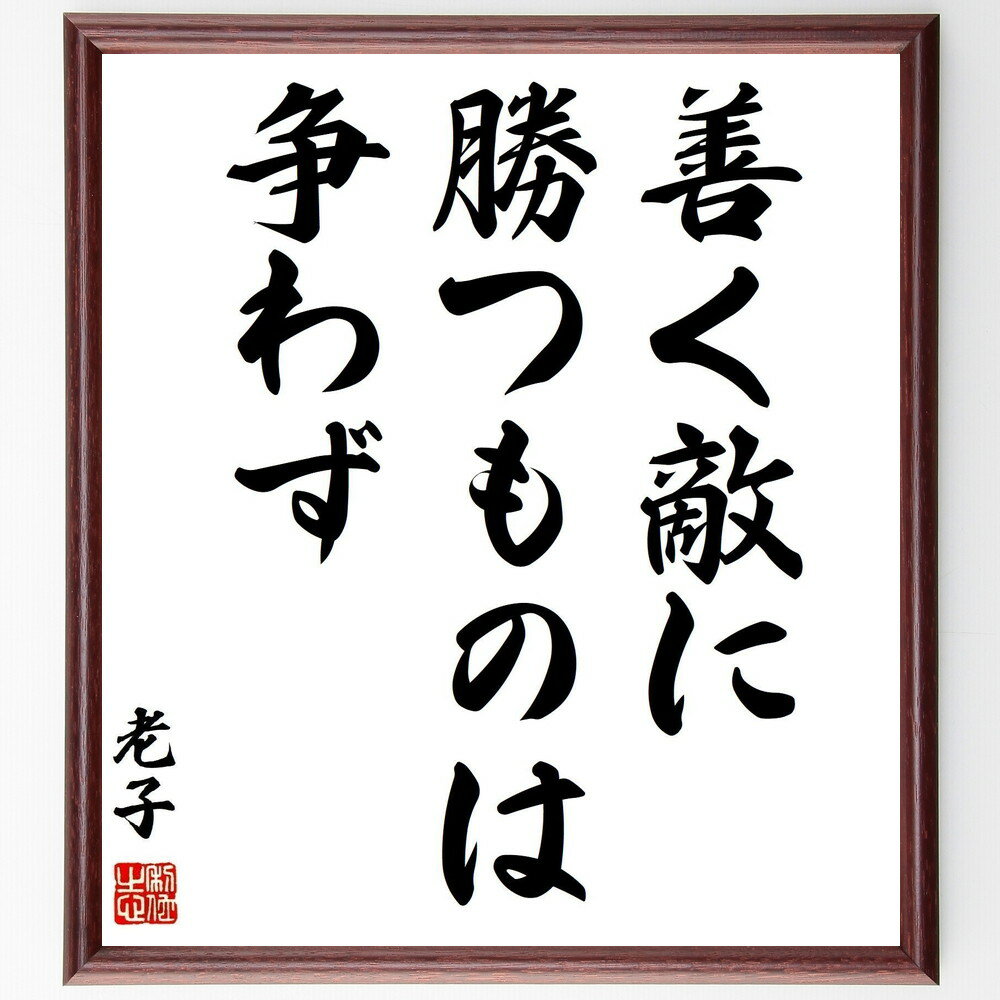 善く敵に
勝つものは
争わず
老子